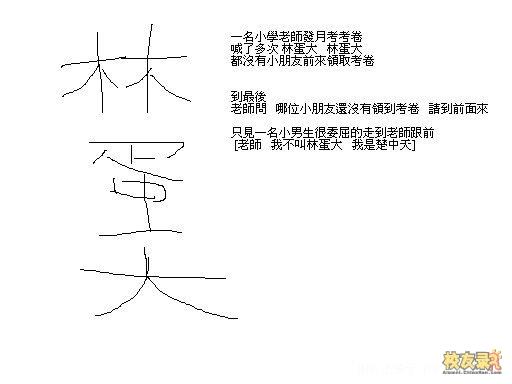 林
蛋
大
一名小學老師發月考考卷
喊了多次 林蛋大 林蛋大
都沒有小朋友前來領取考卷
到最後
老師問 哪位小朋友還沒有領到考卷 請到前面來
只見一名小男生很委屈的走到老師跟前
[老師 我不叫林蛋大 我是楚中天]
校友录